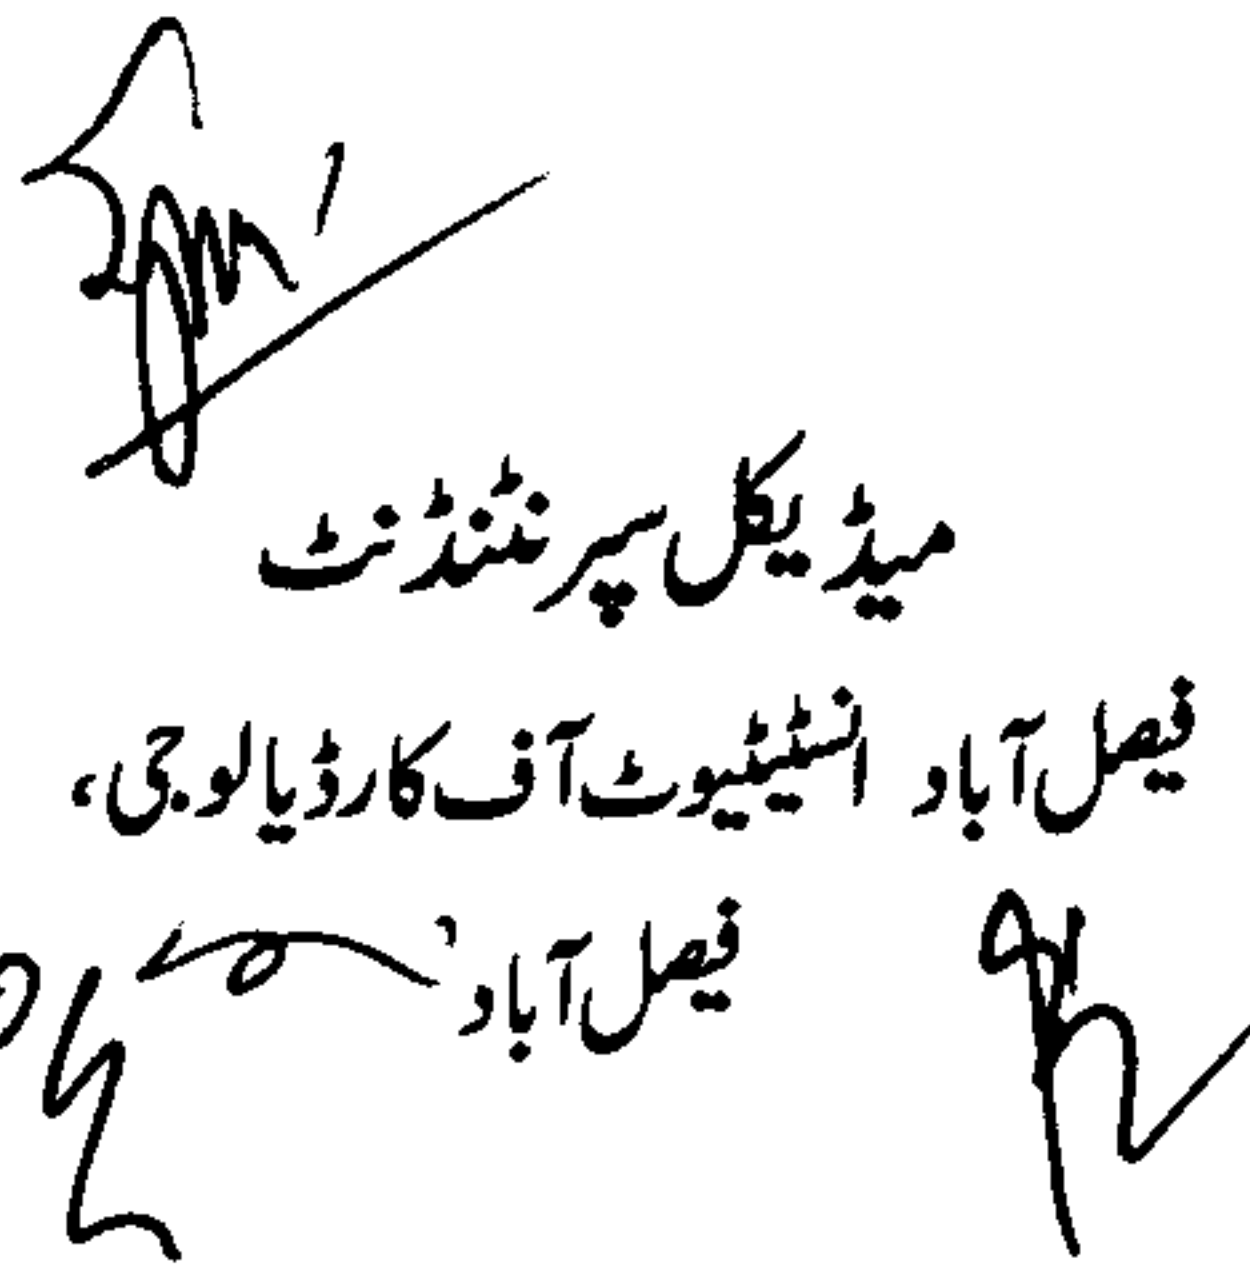 میڈیکل سپرنٹنڈنٹ
فیصل آباد انسٹیٹیوٹ آف کارڈیالوجی،
فیصل آباد